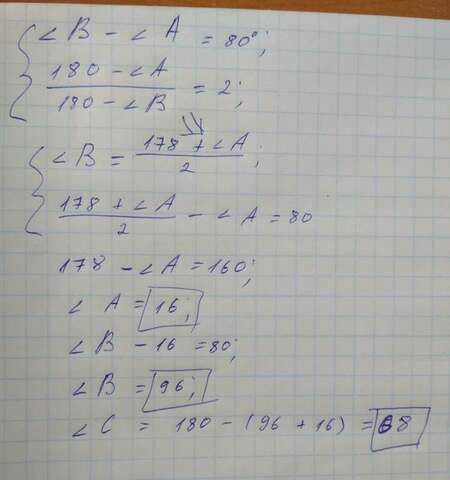 ∠B - ∠A = 80°;
180 - ∠A / 180 - ∠B = 2;
∠B = 178 + ∠A / 2;
178 + ∠A / 2 - ∠A = 80
178 - ∠A = 160;
∠A = 16;
∠B - 16 = 80;
∠B = 96;
∠C = 180 - (96 + 16) = 68